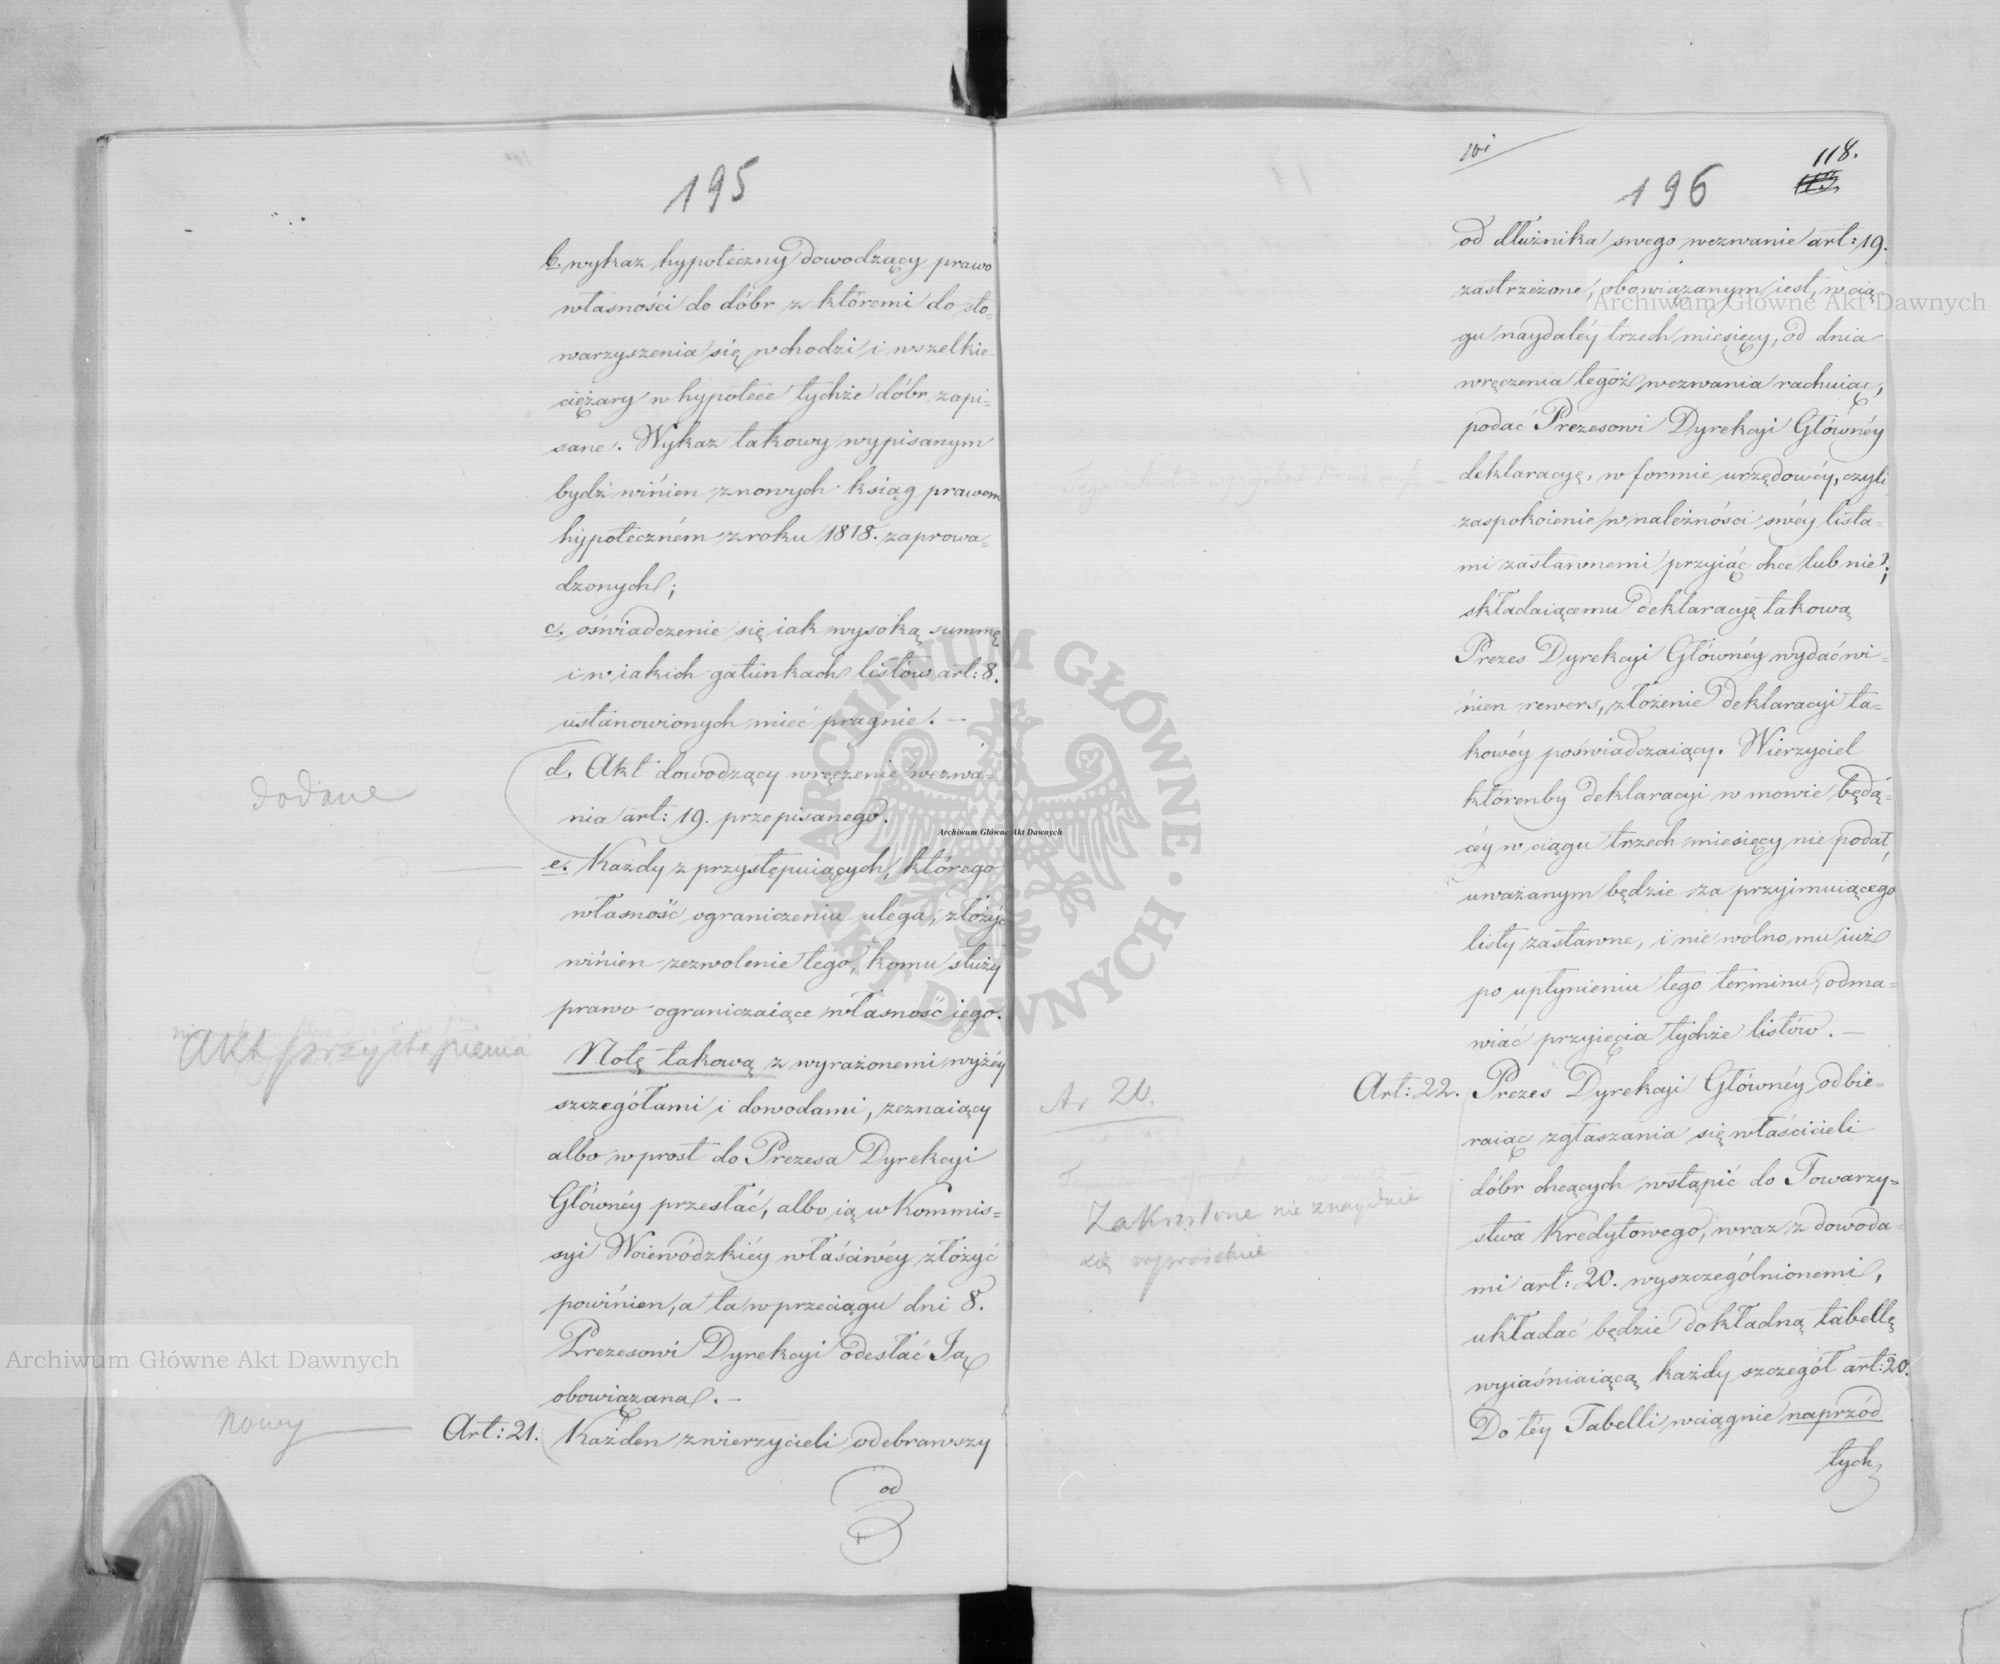 195
b. wykaz hypoteczny dowodzący prawo
własności do dóbr z któremi do sto-
warzyszenia się wchodzi i wszelkie
ciężary w hypotece tychże dóbr zapi-
sane. Wykaz takowy wypisanym
bydź winien z nowych ksiąg prawem
hypoteczném z roku 1818. zaprowa-
dzonych;
c. oświadczenie się iak wysoką summę
i w iakich gatunkach listów art: 8.
ustanowionych mieć pragnie. -
dodane
d. Akt dowodzący wręczenie wezwa-
nia art: 19. przepisanego.
e. Każdy z przystępuiących, którego
własność ograniczeniu ulega, złożyć
winien zezwolenie tego, komu służy
prawo ograniczaiące własność iego.
Akt przystąpienia
Notę takową z wyrażonemi wyżéy
szczegółami i dowodami, zeznaiący
albo wprost do Prezesa Dyrekcyi
Głównéy przesłać, albo ią w Kommis-
syi Woiewódzkiéy właściwéy złożyć
powinien, a ta w przeciągu dni 8.
Prezesowi Dyrekcyi odesłać Ią
obowiązana. -
nowy
Art: 21. Każden z wierzycieli odebrawszy
od
101
118.
196
od dłużnika swego wezwanie art: 19.
zastrzeżone, obowiązanym iest, w cią-
gu naydaléy trzech miesięcy, od dnia
wręczenia tegoż wezwania rachuiąc,
podać Prezesowi Dyrekcyi Głównéy
deklaracyę, w formie urzędowéy, czyli
zaspokoienie w należności swéy lista-
mi zastawnemi przyiąć chce lub nie?;
składaiącemu deklaracyę takową
Prezes Dyrekcyi Głównéy wydać wi-
nien rewers, złożenie deklaracyi ta-
kowéy poświadczaiący. Wierzyciel
którenby deklaracyi w mowie będą-
céy w ciągu trzech miesięcy nie podał,
uważanym będzie za przyimuiącego
listy zastawne, i nie wolno mu iuż
po upłynieniu tego terminu, odma-
wiać przyięcia tychże listów. -
Ar 20.
Art: 22. Prezes Dyrekcyi Głównéy odbie-
raiąc zgłaszania się właścicieli
dóbr chcących wstąpić do Towarzy-
stwa Kredytowego, wraz z dowoda-
mi art: 20. wyszczególnionemi,
układać będzie dokładną tabellę
wyiaśniaiącą każdy szczegół art: 20.
Do téy Tabelli wciągnie naprzód
tych
Zakryslone nie znayduie
się w proiekcie
Archiwum Główne Akt Dawnych
Archiwum Główne Akt Dawnych
Archiwum Główne Akt Dawnych
ARCHIWUM GŁÓWNE · AKT DAWNYCH ·